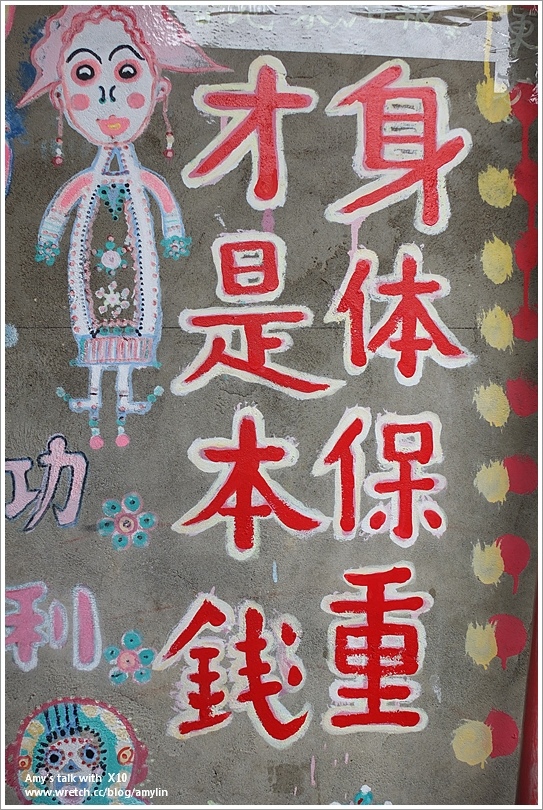 身体保重
才是本銭
功
利
Amy's talk with X10
www.wretch.cc/blog/amylin